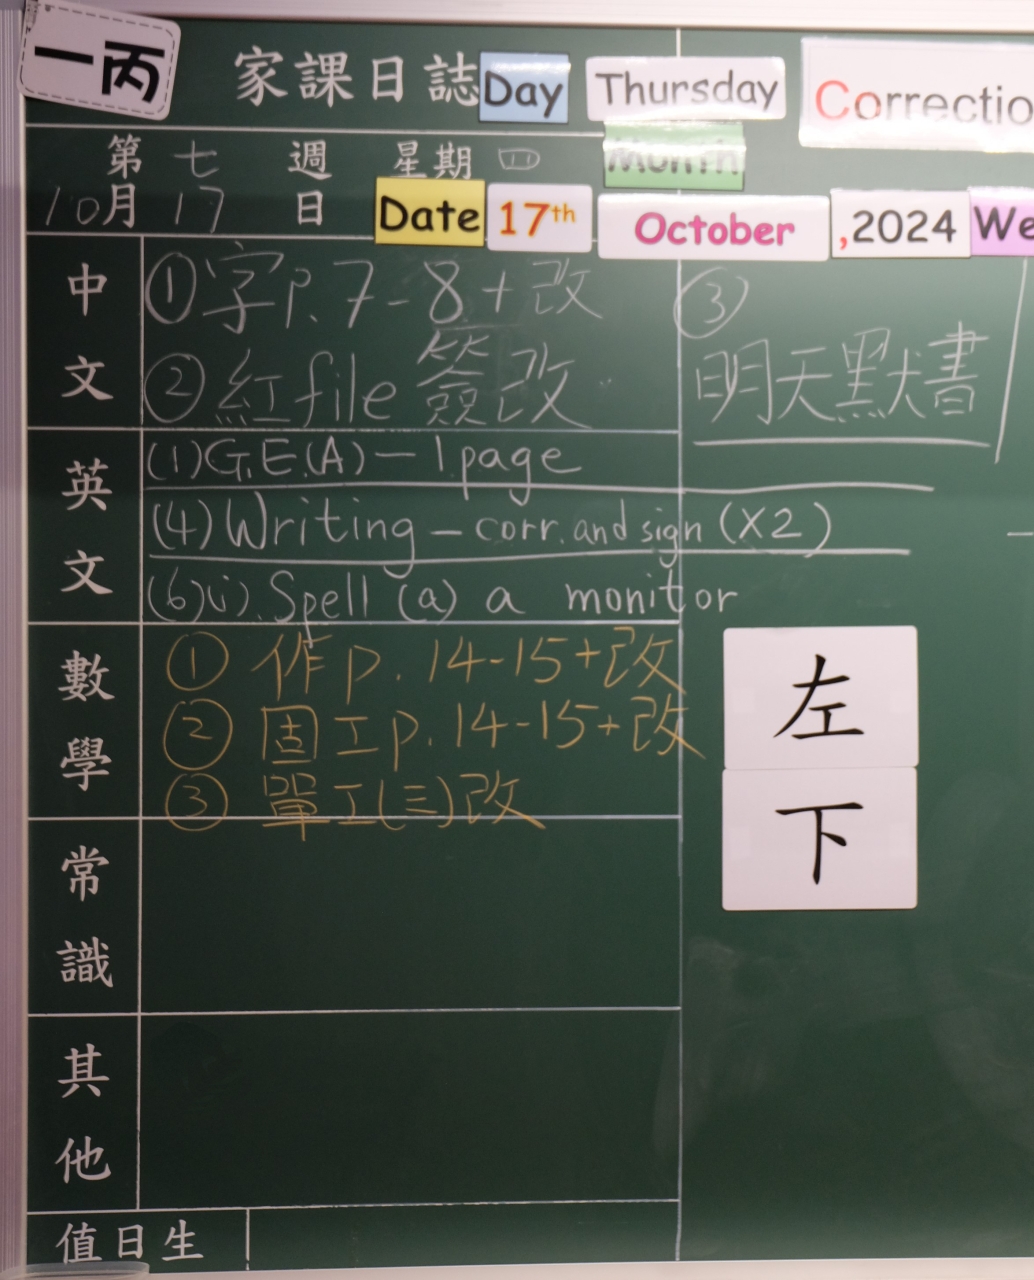 一丙
家課日誌 Day Thursday Correctio
第七週 星期四 Month
10月17日 Date 17th October ,2024 We
中文
①字P.7-8+改
②紅file簽改
③
明天默書
英文
(1)G.E.(A)－1page
(4)Writing－corr.and sign(X2)
(6)(i).Spell (a) a monitor
數學
①作p.14-15+改
②固工p.14-15+改
③單工(三)改
左
下
常識
其他
值日生